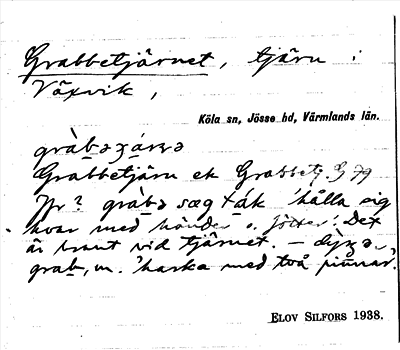 Grabbetjärnet, tjärn i
Växvik,
Köla sn, Jösse hd, Värmlands län.
Grabbetjärn ek Grabbetj. G 79
Jfr? 'hålla sig
kvar med händer o. fötter'. Det
är brant vid tjärnet. —
grab, m. 'harka med två pinnar.'
ELOV SILFORS 1938.